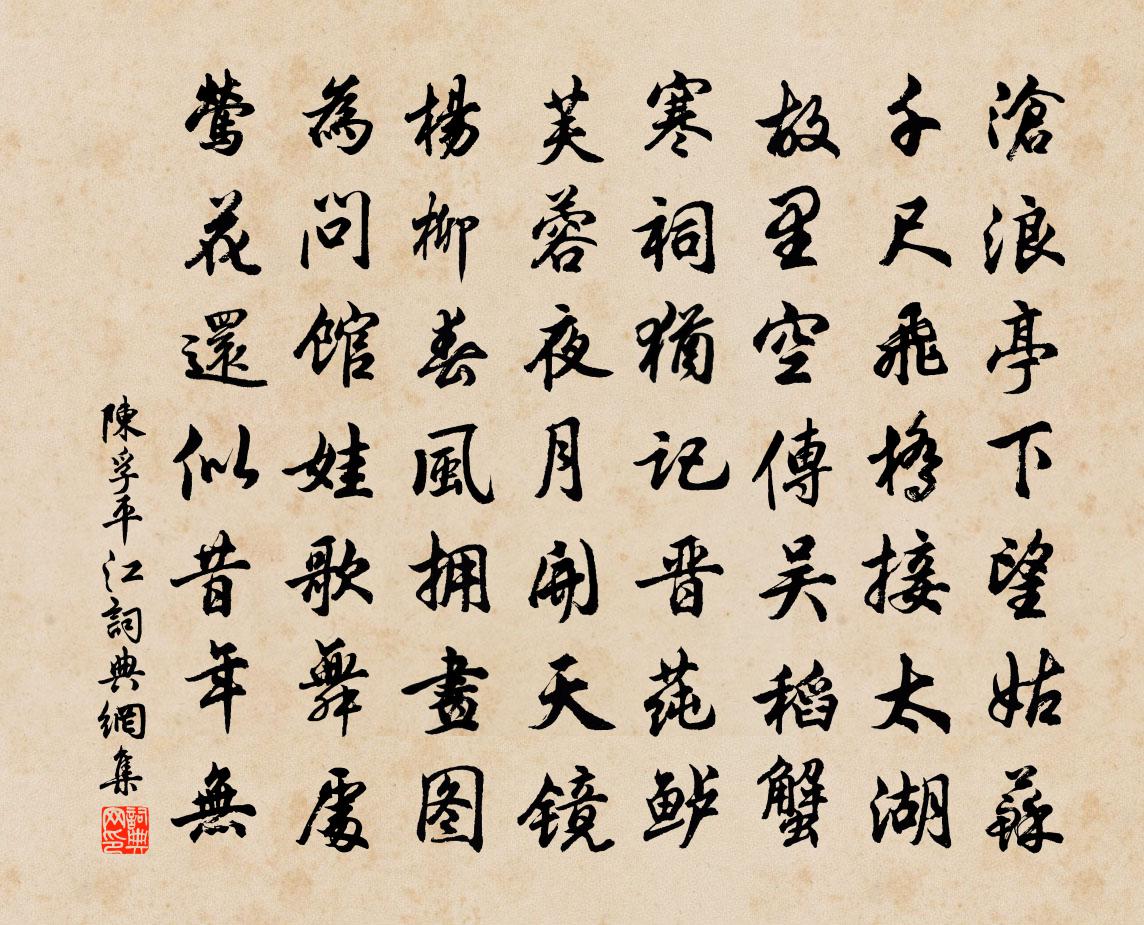 滄浪亭下望姑蘇
千尺飛橋接太湖
故里空傳吴稻蟹
寒祠猶記晋蒓鲈
芙蓉夜月開天镜
楊柳春風拥畫图
為問馆娃歌舞處
鶯花還似昔年無
陳孚平江詞典網集
詞典网印